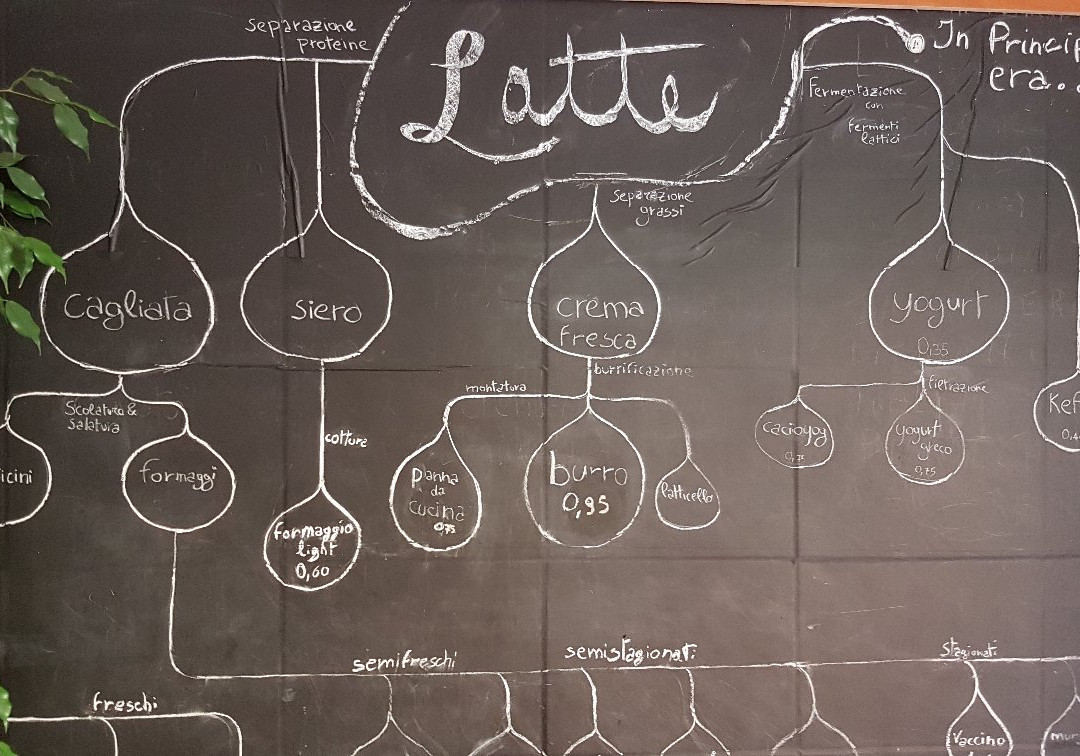 Separazione
proteine
Latte
In Princip
era...
Fermentazione
con
fermenti
lattici
Separazione
grassi
cagliata
siero
crema
fresca
yogurt
0,35
burrificazione
montatura
filetrazione
Scolatura &
Salatura
cotture
icini
formaggi
panna
da
cucina
0,75
burro
0,95
latticello
cacioyog
yogurt
greco
0,75
Kef
formaggio
light
0,60
semifreschi
semistagionati
Stagionati
freschi
Vaccino
mur